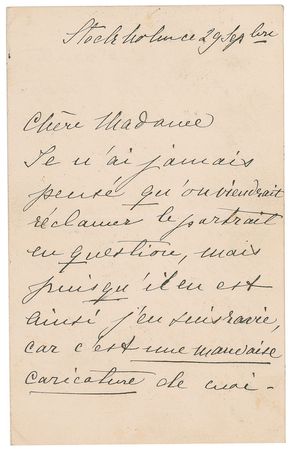 Stockholm ce 29 Sep bre
Chère Madame
Je n'ai jamais
pensé qu'on viendrait
réclamer le portrait
en question, mais
puisqu'il en est
ainsi j'en suis ravie,
car c'est une mauvaise
caricature de moi-